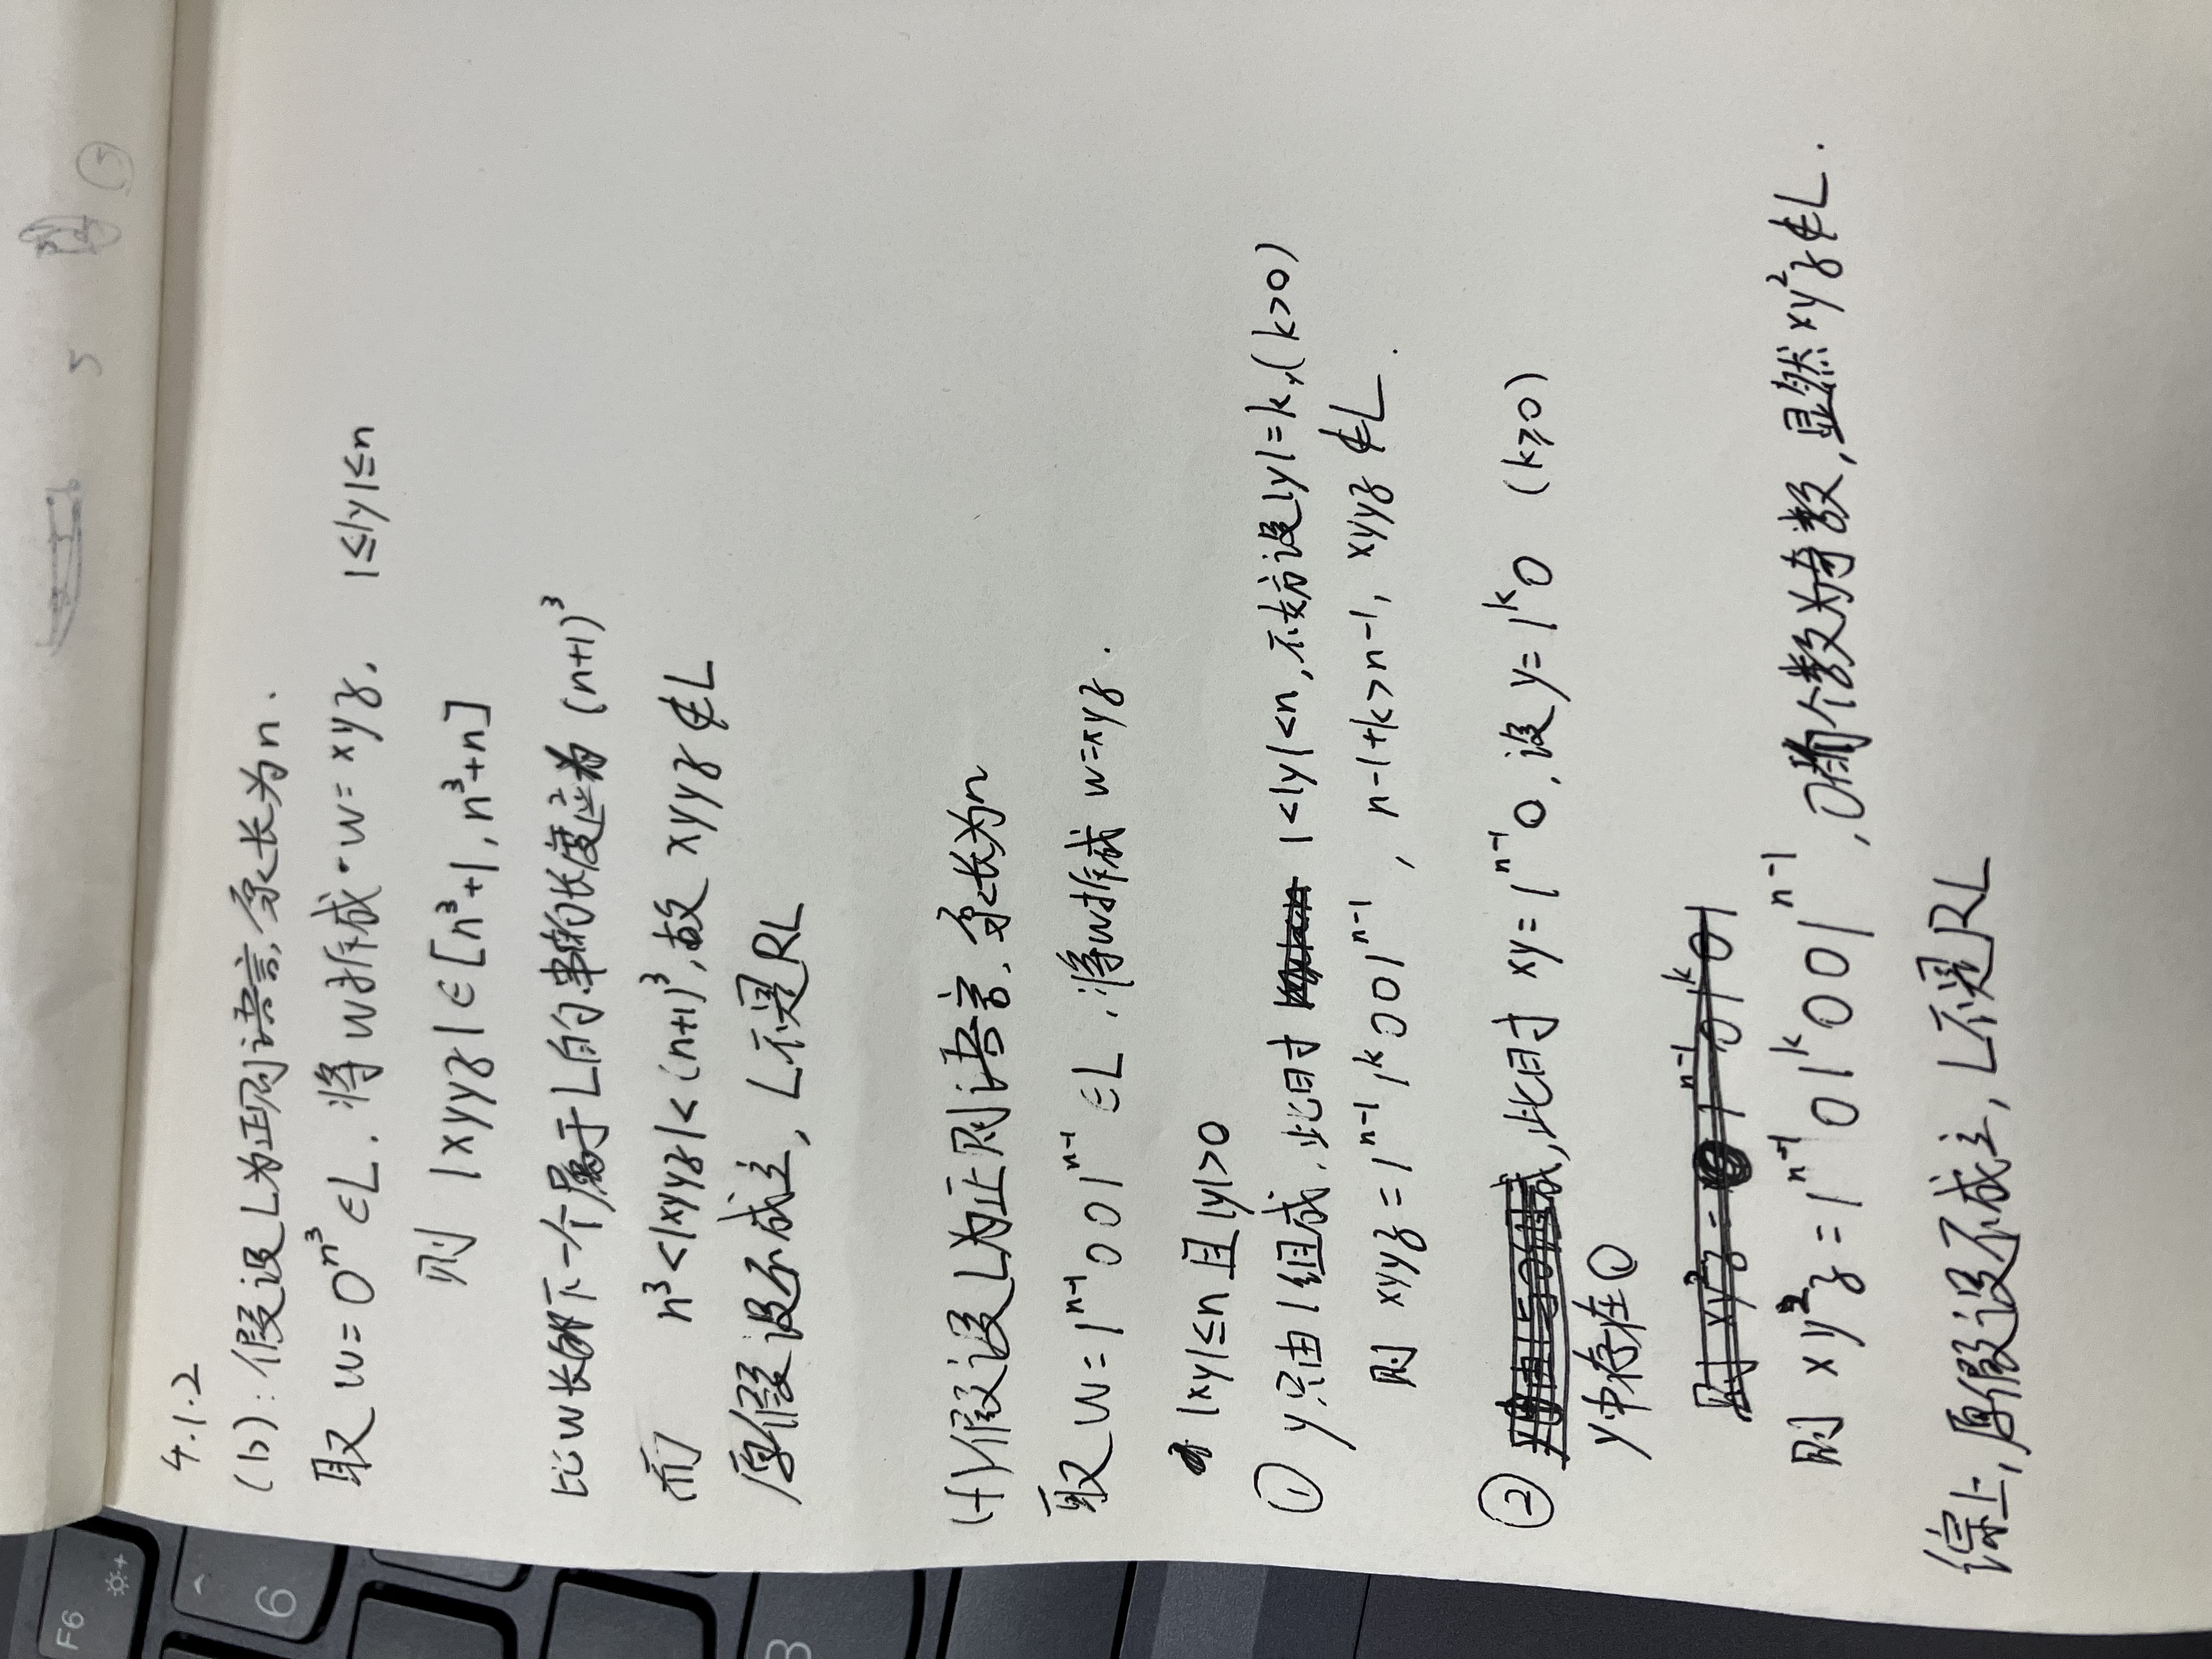 4.1.2
(b):假设L为正则语言,泵长为n.
取 w=0^{n^3}∈L.将w拆成·w=xyz, 1≤|y|≤n
则 |xyyz|∈[n³+1,n³+n]
比w长的下一个属于L的串的长度应为 (n+1)³
而 n³<|xyyz|<(n+1)³,故 xyyz∉L
原假设不成立,L不是RL
(f)假设L为正则语言.泵长为n
取 w=1^{n-1}001^{n-1}∈L.将w拆成 w=xyz.
|xy|≤n 且 |y|>0
① y只由1组成.此时 1<|y|<n,不妨设|y|=k,(k>0)
则 xyyz=1^{n-1}1^k001^{n-1}, n-1+k>n-1, xyyz∉L.
② 此时 xy=1^{n-1}0,设y=1^k0 (k≥0)
y中存在0
则 xy²z=
则 xy²z=1^{n-1}01^k001^{n-1},0的个数为奇数,显然xy²z∉L.
综上,原假设不成立,L不是RL
F6
6